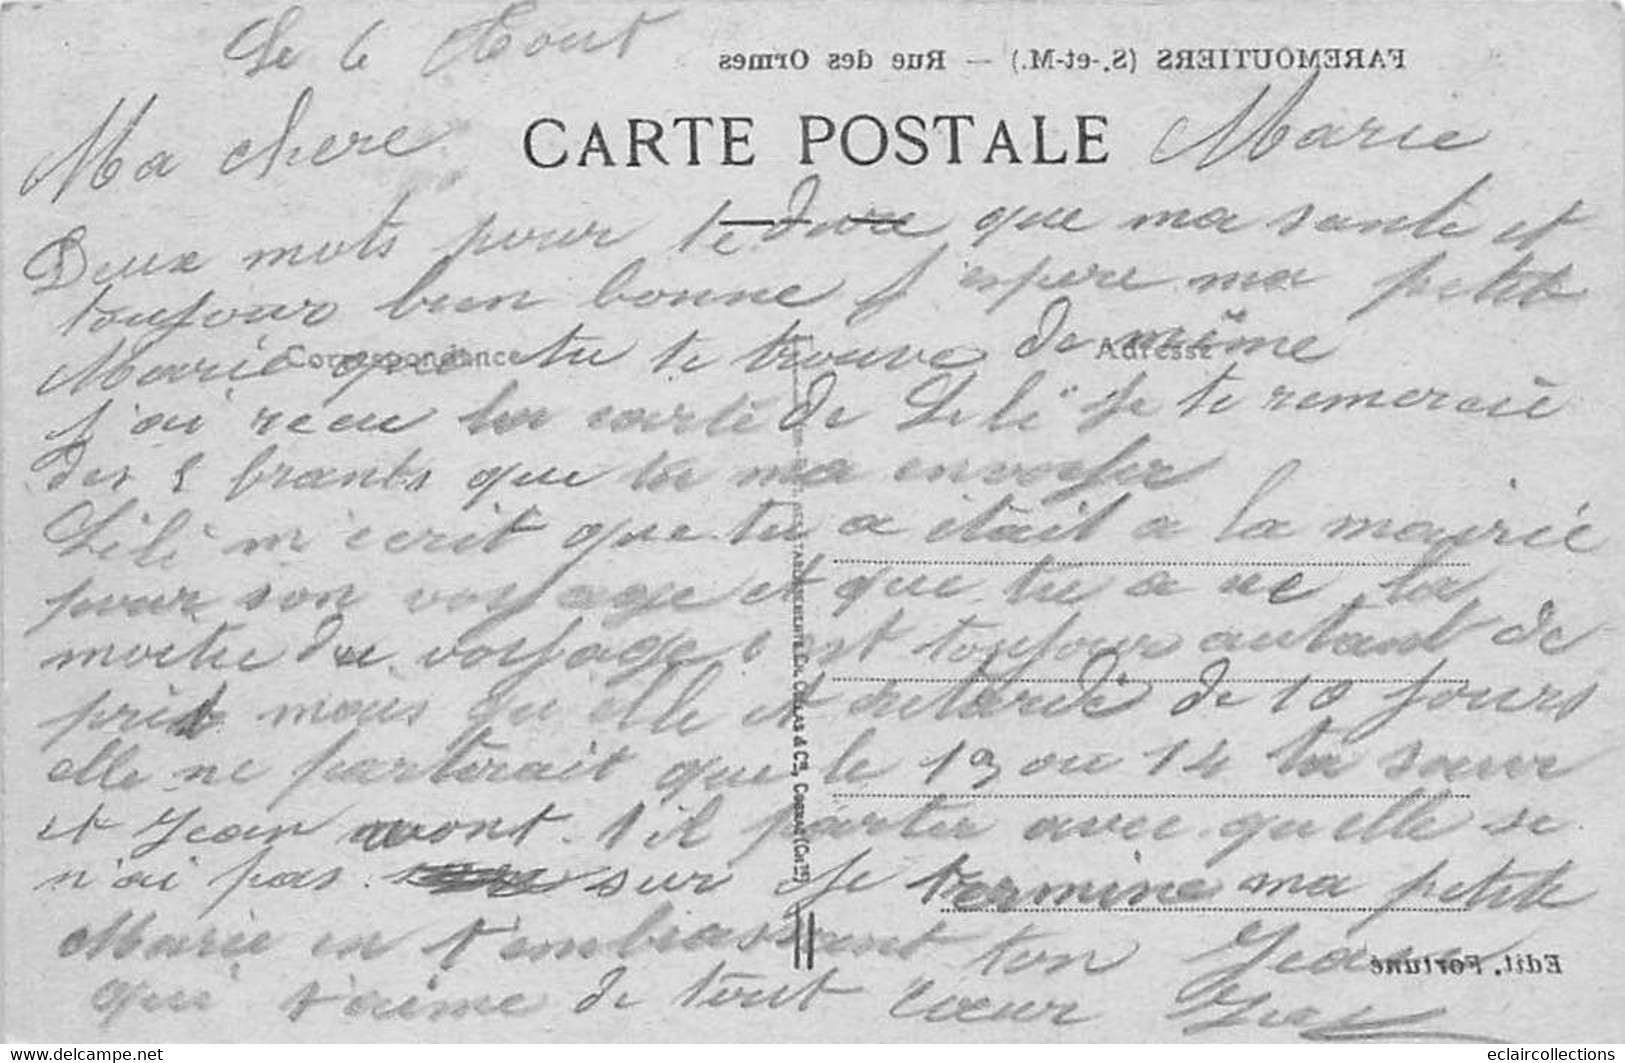 Le 6 Aout
FAREMOUTIERS (S.-et-M.) — Rue des Ormes
CARTE POSTALE
Ma chere Marie
Deux mots pour te dire que ma sante et
toujour bien bonne j'espere ma petite
Correspondance
Adresse
Marie que tu te trouve de même
j'ai recu ta carte de Lili je te remercie
des 5 frants que tu ma envoyer
Lili m'ecrit que tu a était a la mairie
pour son voyage et que tu a ue la
moitie du voyage s est toujour autant de
pris mais qu elle et retardé de 10 jours
elle ne partirait que le 13 ou 14 ta sœur
et Jean vont t'il partir avec quelle se
n'ai pas sur Je termine ma petite
Marie en t'embrassant ton Jean
qui t'aime de tout cœur
ÉTABLISSEMENTS CH. COLLAS & Cie, COGNAC (Chte)
Edit. Fortuné
eclaircollections